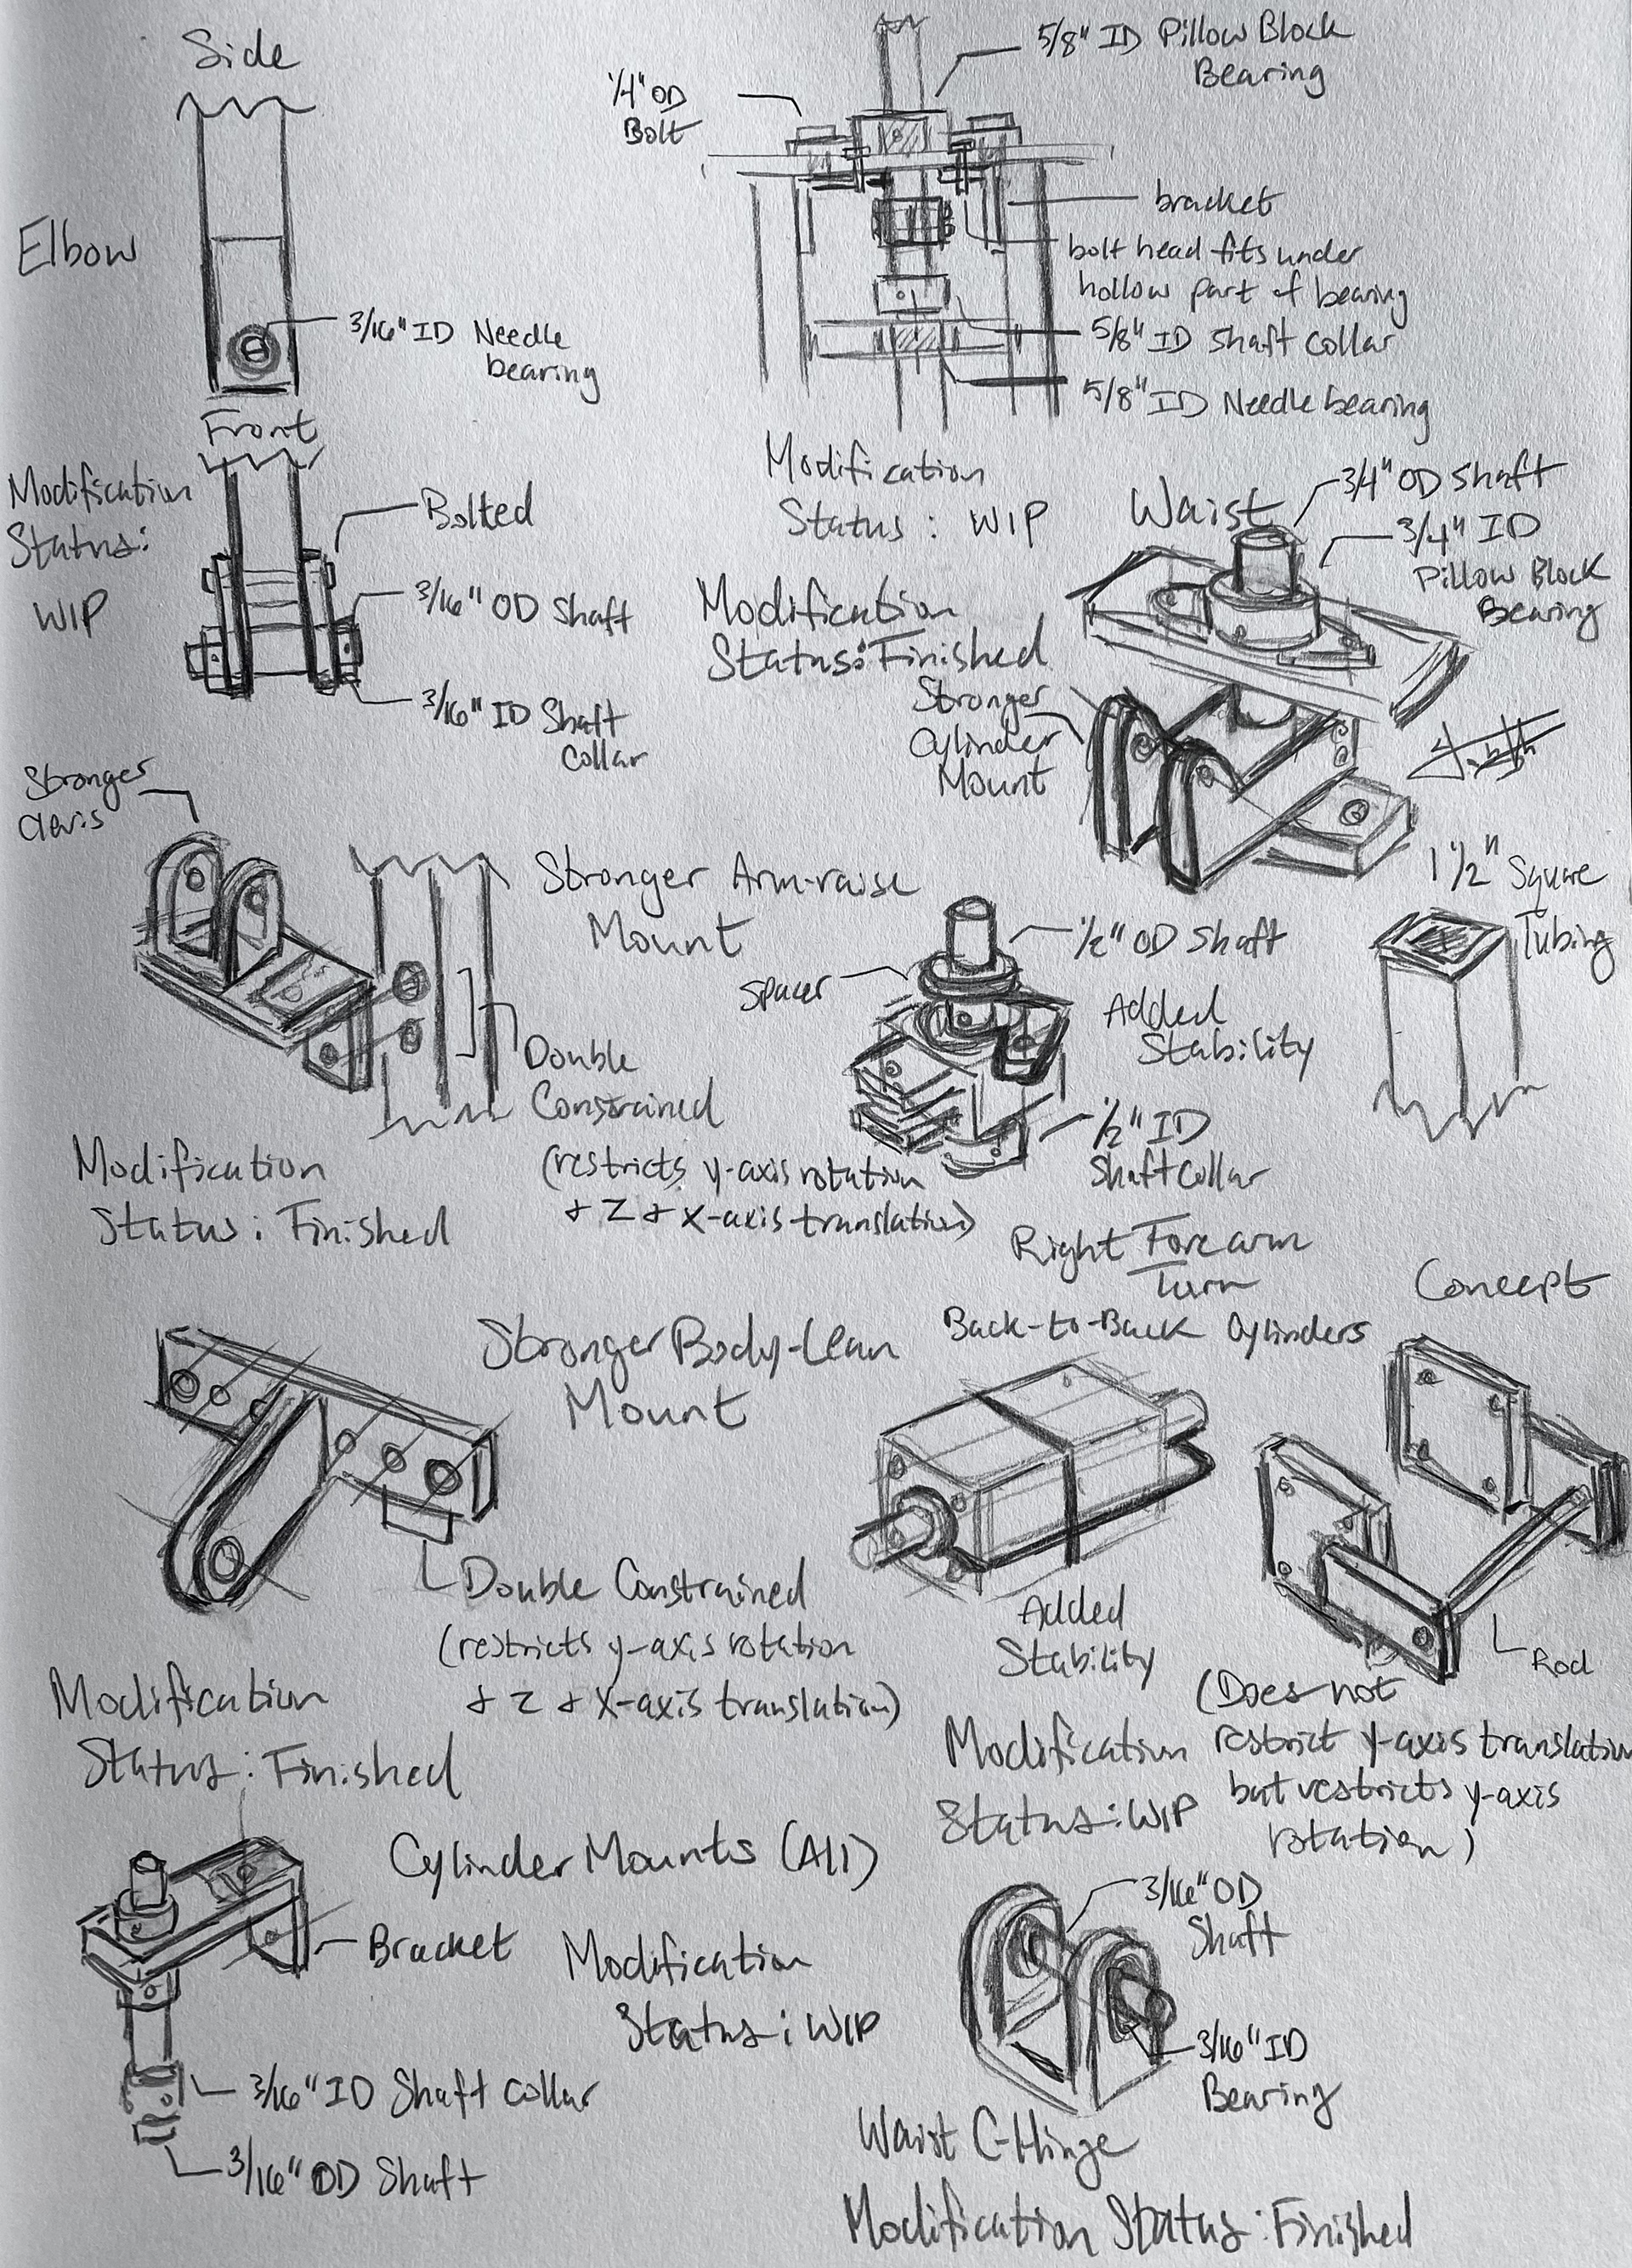 Side
Elbow
3/16" ID Needle
bearing
Front
Modification
Status:
WIP
Bolted
3/16" OD Shaft
3/16" ID Shaft
Collar
1/4" OD
Bolt
5/8" ID Pillow Block
Bearing
bracket
bolt head fits under
hollow part of bearing
5/8" ID Shaft Collar
5/8" ID Needle bearing
Modification
Status: WIP
Waist
3/4" OD Shaft
3/4" ID
Pillow Block
Bearing
Modification
Status: Finished
Stronger
Cylinder
Mount
Stronger
Clevis
Stronger Arm-raise
Mount
Double
Constrained
(restricts y-axis rotation
+ Z + X-axis translation)
Modification
Status: Finished
1/2" OD Shaft
Spacer
Added
Stability
1/2" ID
Shaft Collar
Right Forearm
Turn
1 1/2" Square
Tubing
Stronger Body-Lean
Mount
Double Constrained
(restricts y-axis rotation
+ Z + X-axis translation)
Modification
Status: Finished
Back-to-Back Cylinders
Added
Stability
Modification
Status: WIP
Concept
Rod
(Does not
restrict y-axis translation
but restricts y-axis
rotation)
Cylinder Mounts (All)
Bracket
Modification
Status: WIP
3/16" ID Shaft Collar
3/16" OD Shaft
3/16" OD
Shaft
3/16" ID
Bearing
Waist C-Hinge
Modification Status: Finished